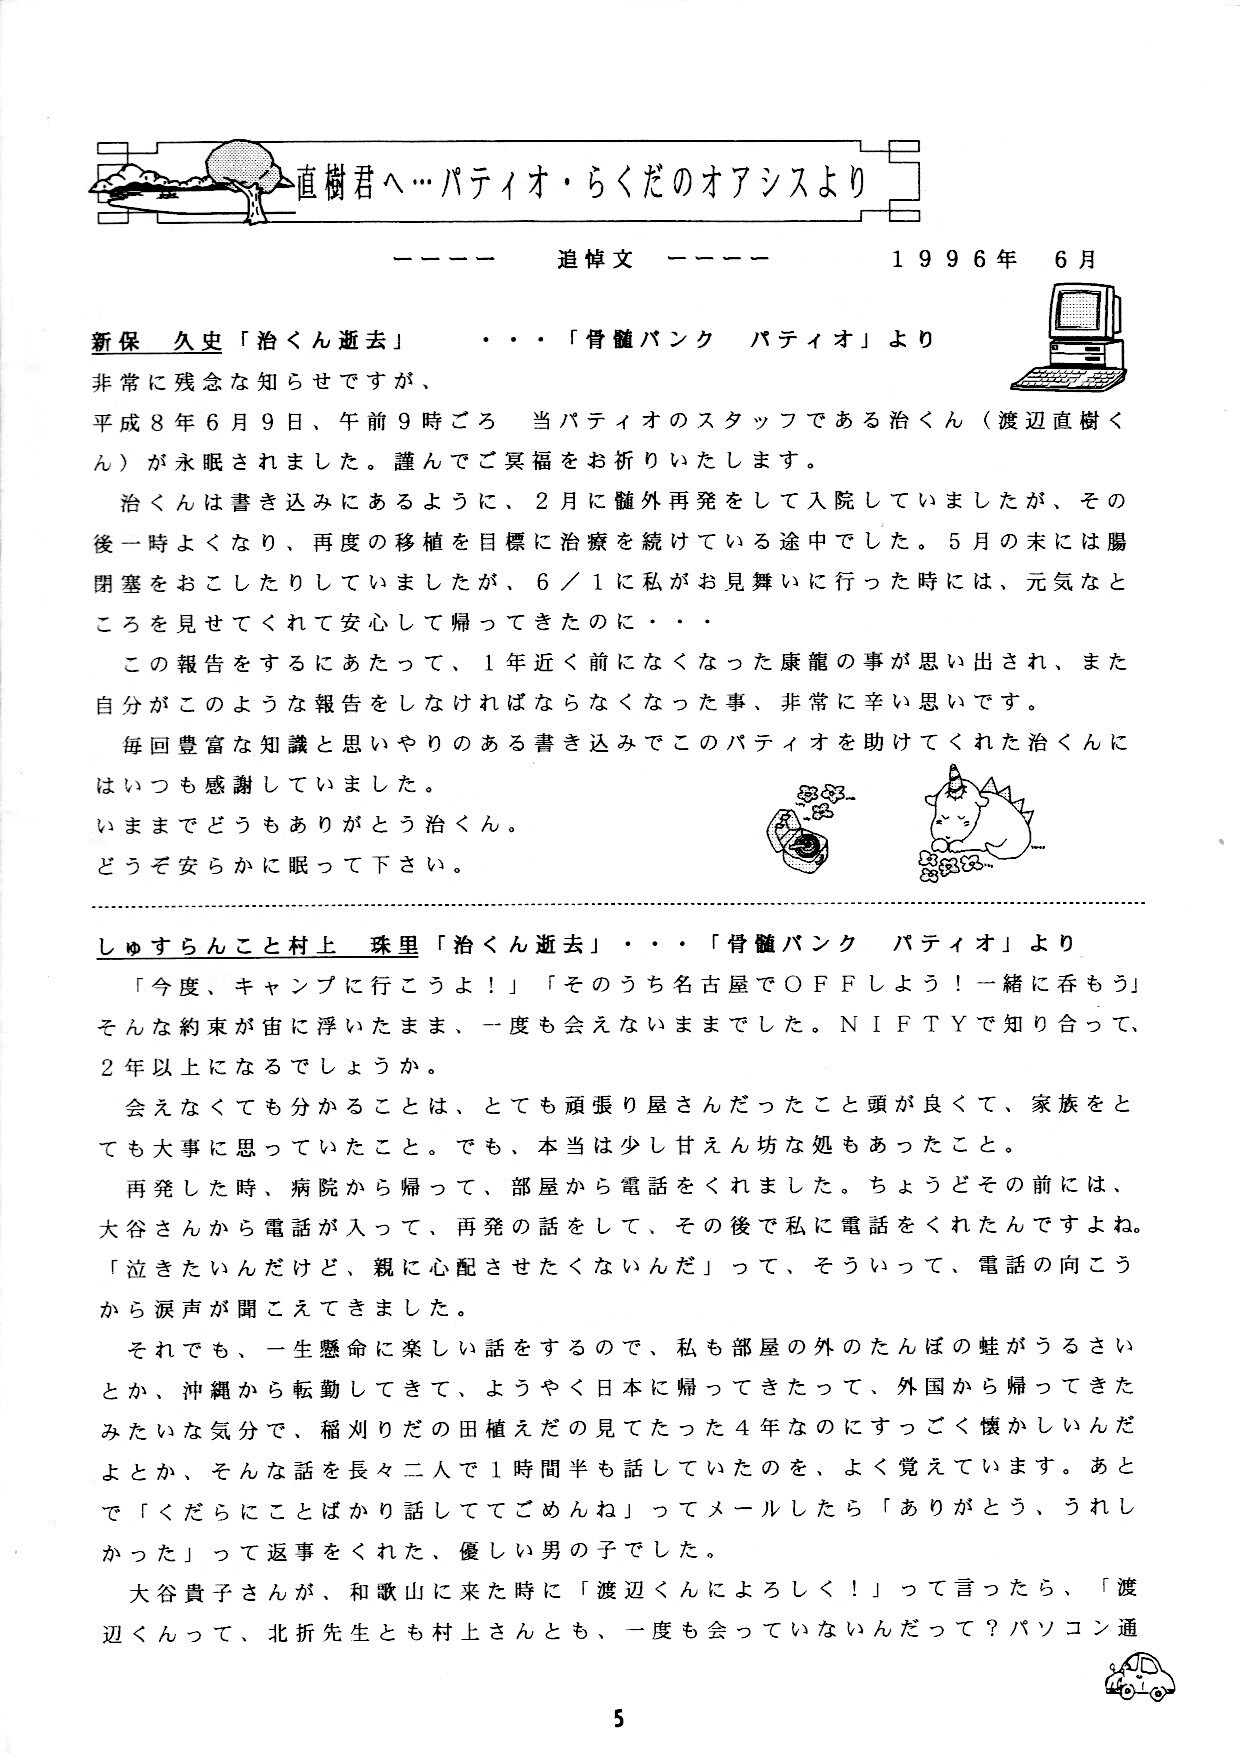 直樹君へ…パティオ・らくだのオアシスより
ーーーー　追悼文　ーーーー　１９９６年　６月
新保　久史「治くん逝去」　・・・「骨髄バンク　パティオ」より
非常に残念な知らせですが、
平成８年６月９日、午前９時ごろ　当パティオのスタッフである治くん（渡辺直樹く
ん）が永眠されました。謹んでご冥福をお祈りいたします。
　治くんは書き込みにあるように、２月に髄外再発をして入院していましたが、その
後一時よくなり、再度の移植を目標に治療を続けている途中でした。５月の末には腸
閉塞をおこしたりしていましたが、６／１に私がお見舞いに行った時には、元気なと
ころを見せてくれて安心して帰ってきたのに・・・
　この報告をするにあたって、１年近く前になくなった康龍の事が思い出され、また
自分がこのような報告をしなければならなくなった事、非常に辛い思いです。
　毎回豊富な知識と思いやりのある書き込みでこのパティオを助けてくれた治くんに
はいつも感謝していました。
いままでどうもありがとう治くん。
どうぞ安らかに眠って下さい。
しゅすらんこと村上　珠里「治くん逝去」・・・「骨髄バンク　パティオ」より
　「今度、キャンプに行こうよ！」「そのうち名古屋でＯＦＦしよう！一緒に呑もう」
そんな約束が宙に浮いたまま、一度も会えないままでした。ＮＩＦＴＹで知り合って、
２年以上になるでしょうか。
　会えなくても分かることは、とても頑張り屋さんだったこと頭が良くて、家族をと
ても大事に思っていたこと。でも、本当は少し甘えん坊な処もあったこと。
　再発した時、病院から帰って、部屋から電話をくれました。ちょうどその前には、
大谷さんから電話が入って、再発の話をして、その後で私に電話をくれたんですよね。
「泣きたいんだけど、親に心配させたくないんだ」って、そういって、電話の向こう
から涙声が聞こえてきました。
　それでも、一生懸命に楽しい話をするので、私も部屋の外のたんぼの蛙がうるさい
とか、沖縄から転勤してきて、ようやく日本に帰ってきたって、外国から帰ってきた
みたいな気分で、稲刈りだの田植えだの見てたった４年なのにすっごく懐かしいんだ
よとか、そんな話を長々二人で１時間半も話していたのを、よく覚えています。あと
で「くだらにことばかり話しててごめんね」ってメールしたら「ありがとう、うれし
かった」って返事をくれた、優しい男の子でした。
　大谷貴子さんが、和歌山に来た時に「渡辺くんによろしく！」って言ったら、「渡
辺くんって、北折先生とも村上さんとも、一度も会っていないんだって？パソコン通
5